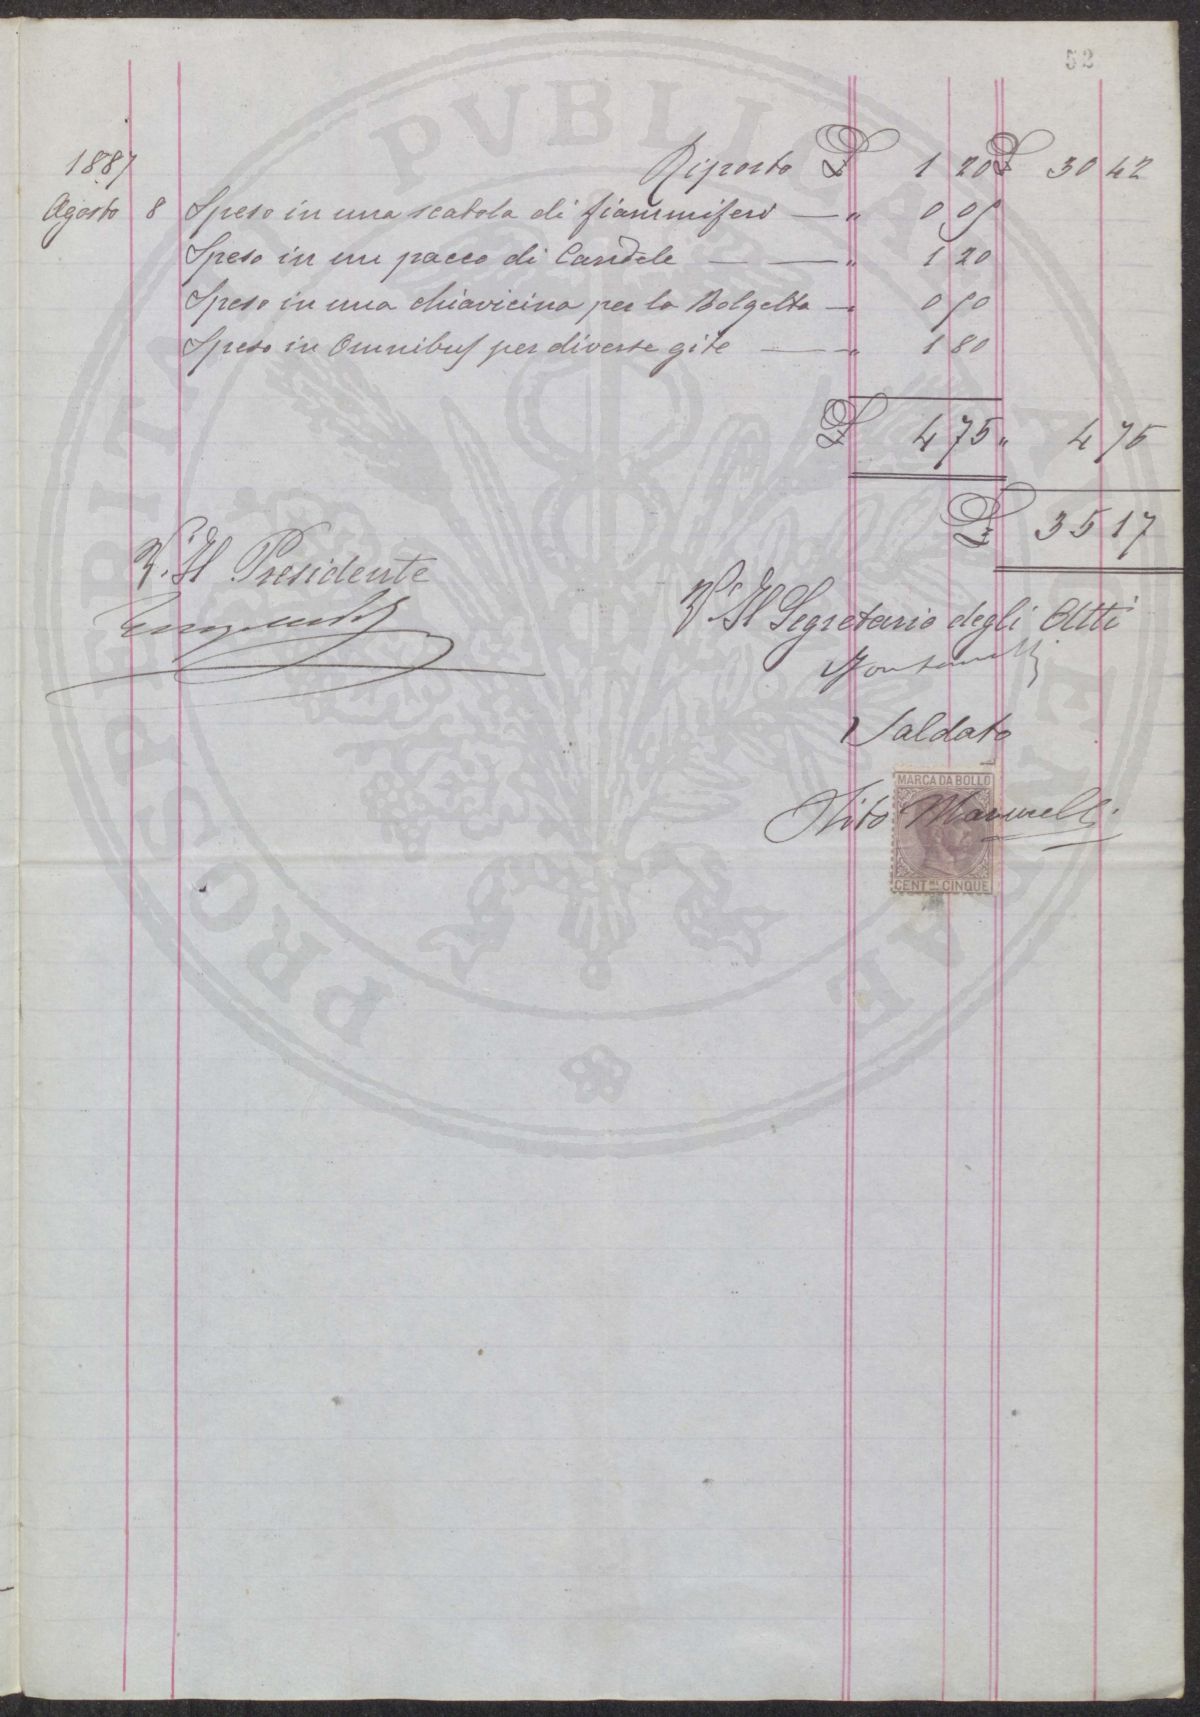 52
1887 Riporto £ 1 20 £ 30 42
Agosto 8 Speso in una scatola di fiammiferi — " 0 05
Speso in un pacco di Candele — — " 1 20
Speso in una chiavicina per la Bolgetta — " 0 50
Speso in Omnibus per diverse gite — " 1 80
£ 4 75 " 4 75
£ 35 17
V.° Il Presidente
V.° Il Segretario degli Atti
Saldato
MARCA DA BOLLO
Tito
CENT.MI CINQUE
PROSPERITATI PVBLICAE AVGENDAE